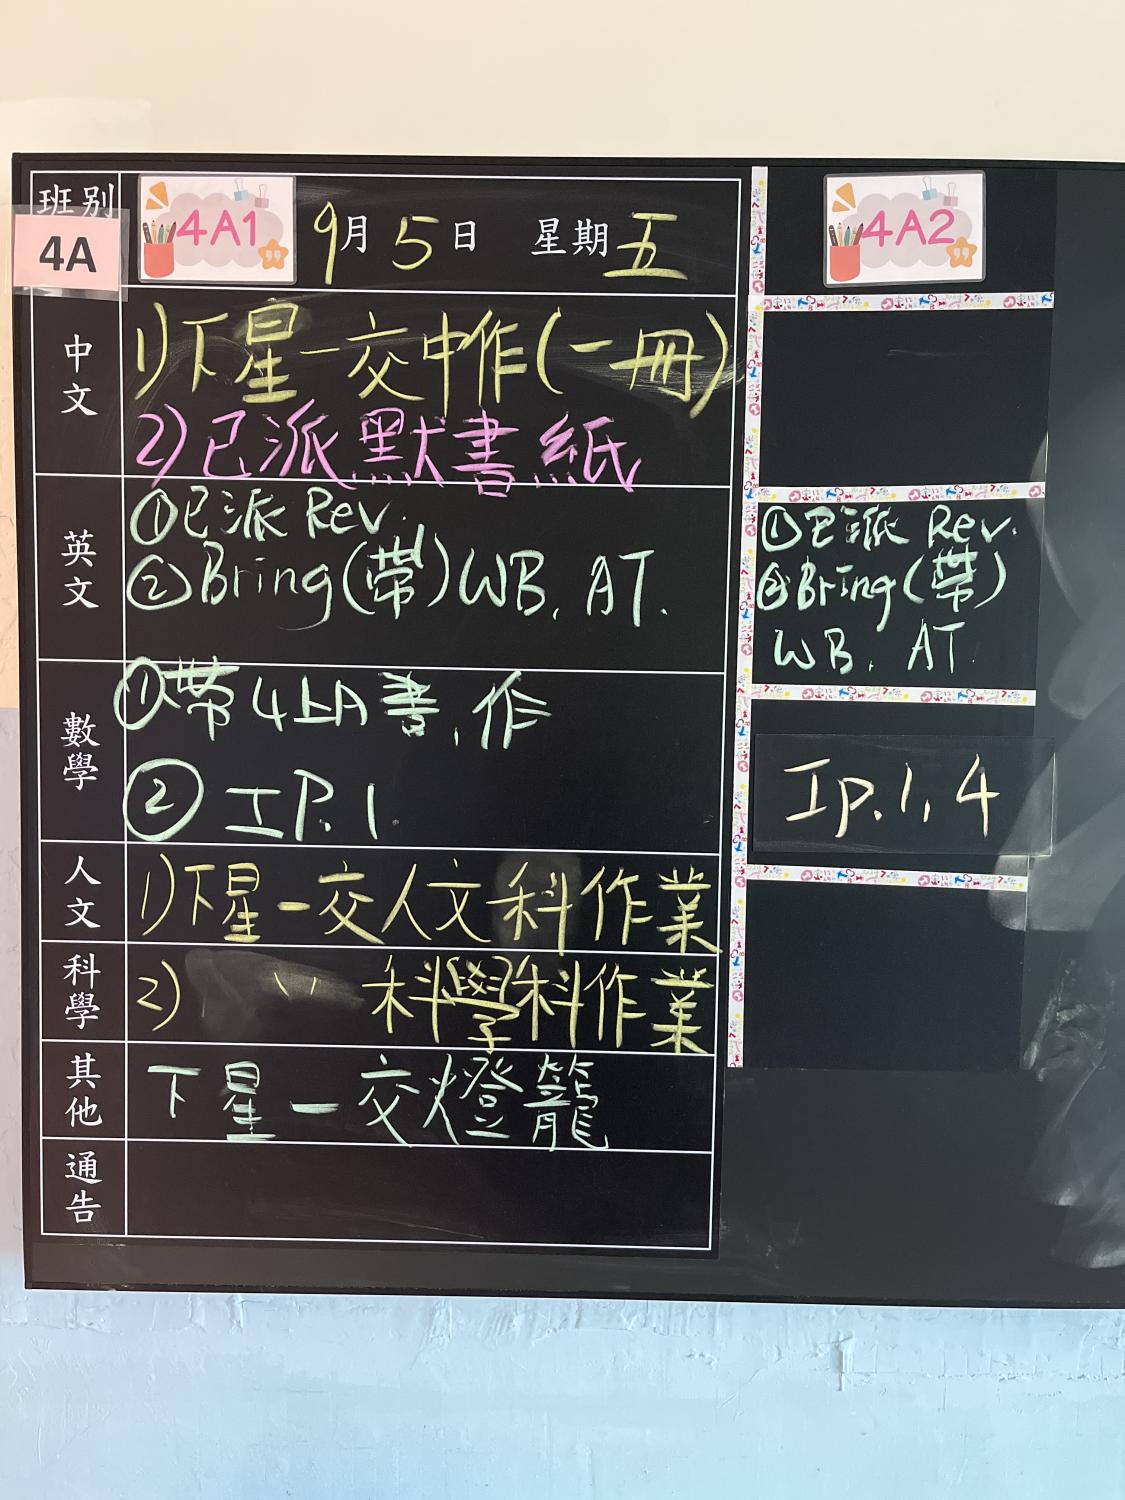 班別
4A
4A1
9月5日 星期五
4A2
中文
1)下星一交中作(一冊)
2)已派默書紙
英文
①已派 Rev.
②Bring(帶)WB, AT.
①已派 Rev.
②Bring(帶)
WB, AT.
數學
①帶4上A書,作
②工P.1
工p.1,4
人文
1)下星一交人文科作業
科學
2) 〃 科學科作業
其他
下星一交燈籠
通告